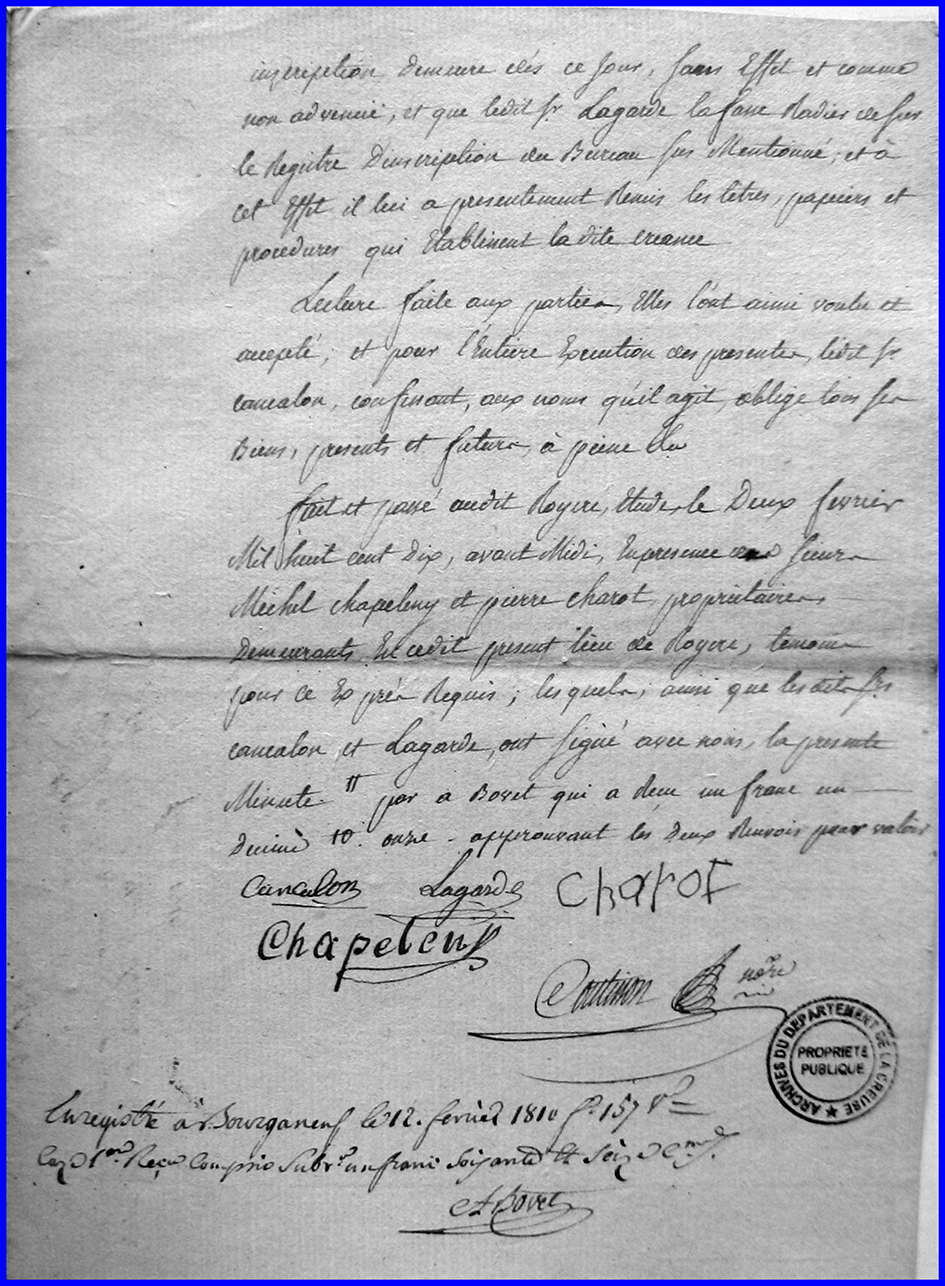 inscription demeure dés ce jour, sans Effet et comme
non advenüe, et que ledit sr. Lagarde la fasse Radier de sur
le Registre D'inscription du Bureau sus Mentionné, et à
cet Effet il lui a presentement Remis les titres, papiers et
procedures qui Etablissent la dite creance
Lecture faite aux parties, Elles l'ont ainsi voulu et
accepté, et pour l'Entiere Execution des presentes, ledit sr.
cancalon, confessant, aux noms qu'il agit, oblige tous ses
Biens, presents et futurs, à peine &a
fait et passé audit Royere, Etude, le Deux fevrier
Mil huit cent Dix, avant Midi, En presence des sieurs
Michel chapeleny et pierre charot, proprietaires,
Demeurants En cedit present lieu de Royere, temoins
pour ce Exprés Requis; lesquels, ainsi que lesdits srs
cancalon et Lagarde, ont signé avec nous, la presente
Minute " par a Bovet qui a Recu un franc un
Decime 10. onze - approuvant les Deux Renvois pour valoir
Cancalon Lagarde Charot
Chapeleny
Coutisson nore
Enregistré a Bourganeuf le 12. fevrier 1810 fo. 157 vo
Case 1ere Reçu Compris Subvon un franc Soixante et Seize cmes.
A Bovet
ARCHIVES DU DEPARTEMENT DE LA CREUSE
PROPRIETE
PUBLIQUE